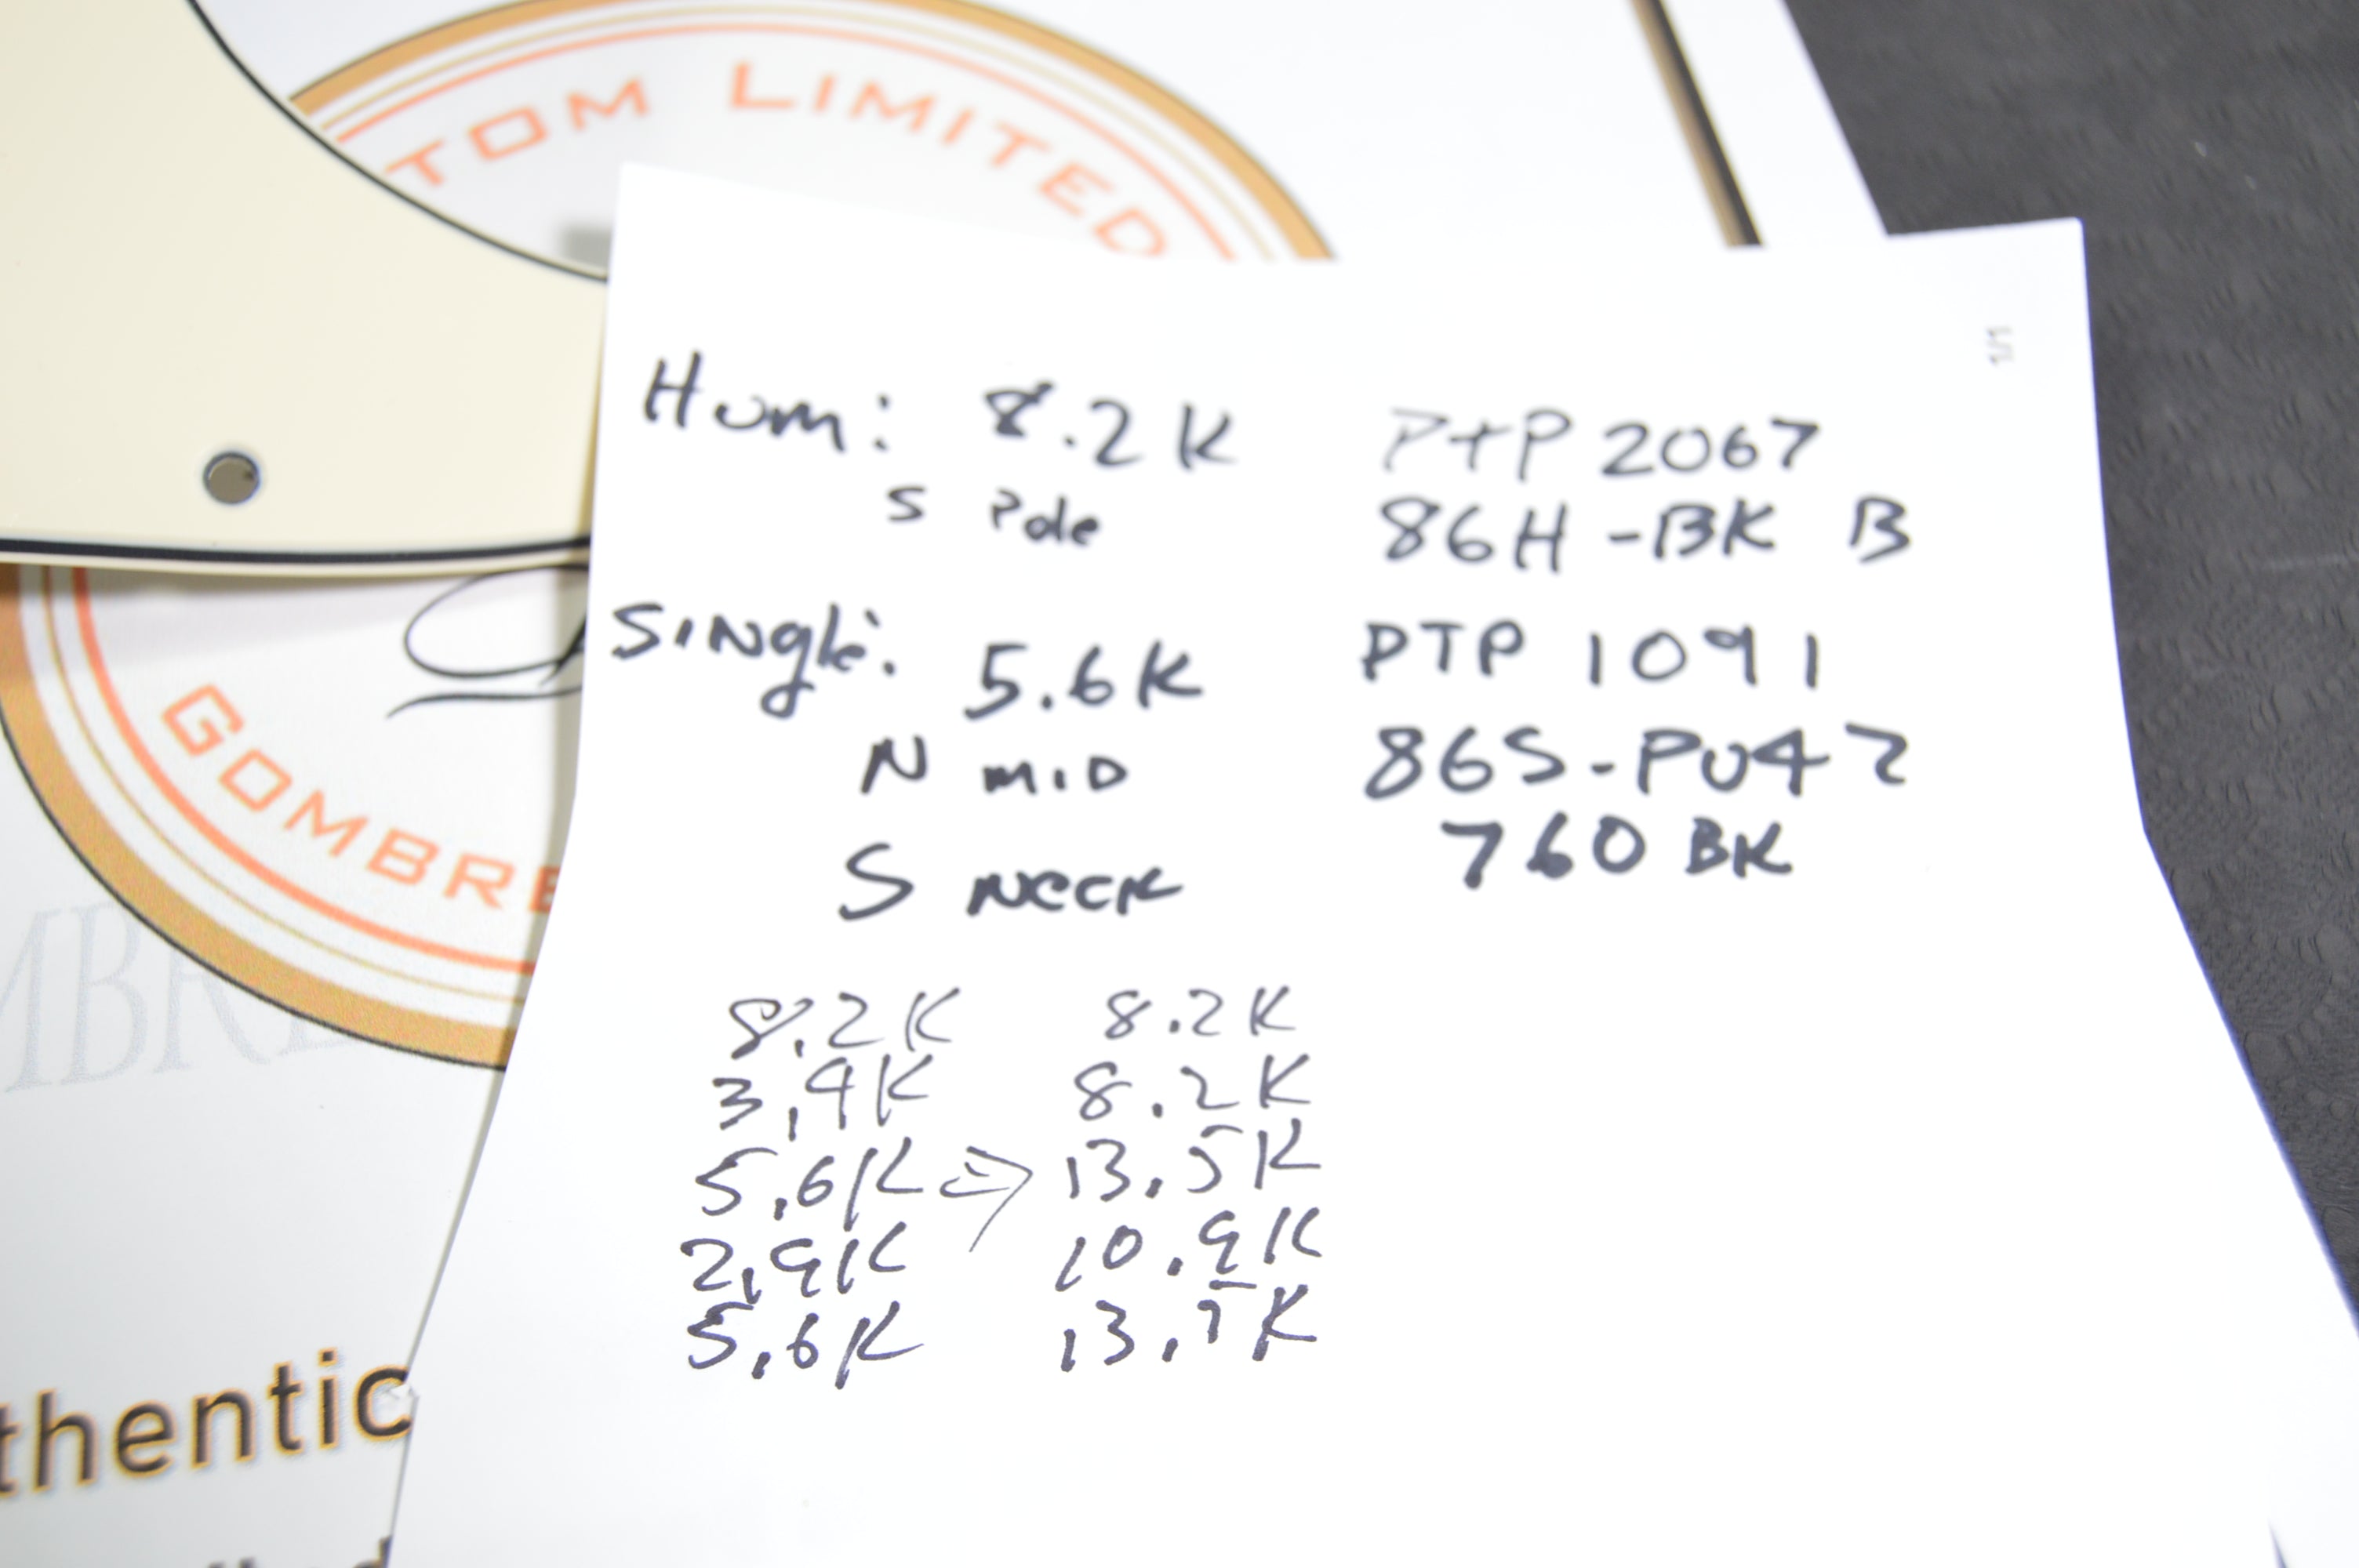 TOM LIMITED
1/1
Hum: 8.2K PTP 2067
S Pole 86H-BK B
Single: 5.6K PTP 1091
N MID 86S-PU42
S NECK 760 BK
8.2K 8.2K
3.9K 8.2K
5.6K ⇒ 13.5K
2.9K 10.9K
5.6K 13.5K
GOMBRE
MBRE
thentic